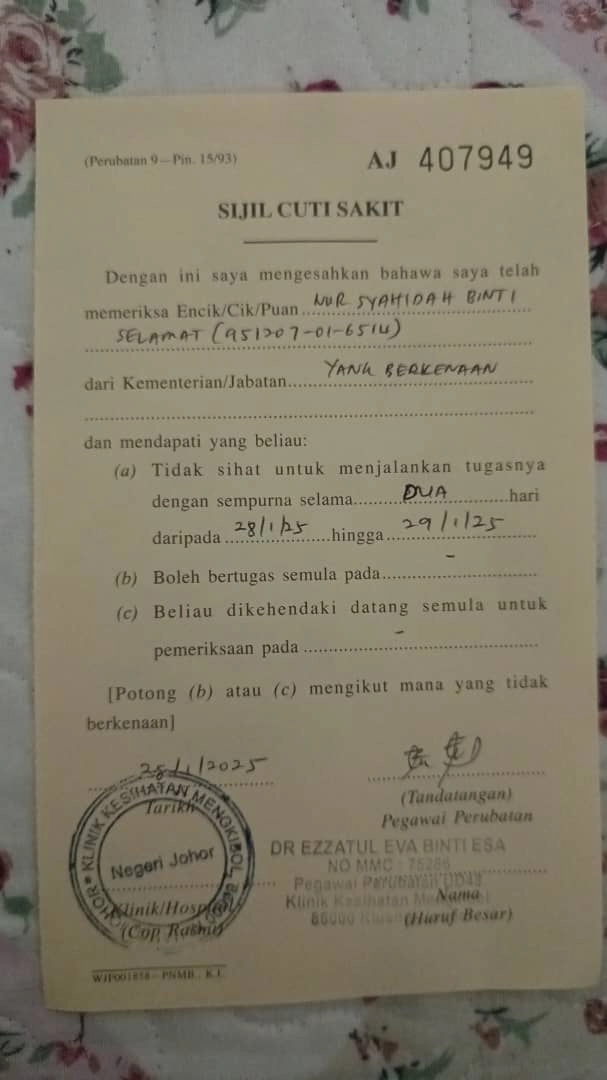 (Perubatan 9—Pin. 15/93)
AJ 407949
SIJIL CUTI SAKIT
Dengan ini saya mengesahkan bahawa saya telah
memeriksa Encik/Cik/Puan NUR SYAHIDAH BINTI
SELAMAT (951207-01-6514)
dari Kementerian/Jabatan YANG BERKENAAN
dan mendapati yang beliau:
(a) Tidak sihat untuk menjalankan tugasnya
dengan sempurna selama DUA hari
daripada 28/1/25 hingga 29/1/25
(b) Boleh bertugas semula pada -
(c) Beliau dikehendaki datang semula untuk
pemeriksaan pada -
[Potong (b) atau (c) mengikut mana yang tidak
berkenaan]
28/1/2025
Tarikh
(Tandatangan)
Pegawai Perubatan
KLINIK KESIHATAN MENGKIBOL
JOHOR
Negeri Johor
DR EZZATUL EVA BINTI ESA
NO MMC : 75286
Pegawai Perubatan UD43
Klinik Kesihatan
Nama
86000
(Huruf Besar)
Klinik/Hospital
(Cop Rasmi)
PNMB., K.L.